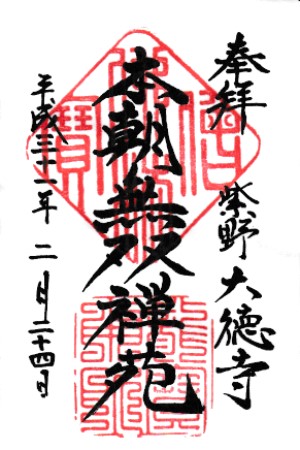 奉拝 紫野大徳寺
本朝無双禅苑
平成三十一年二月二十四日